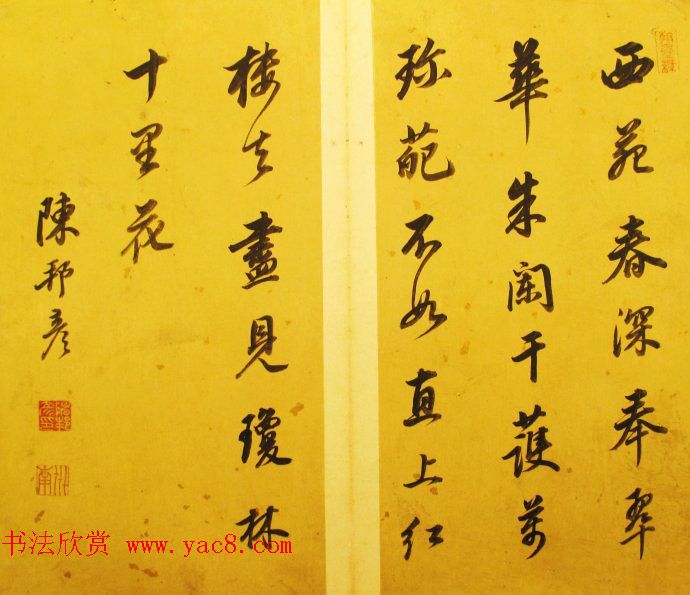 西苑春深奉翠
華朱闌干護萬
珎葩不如直上紅
樓去盡見瓊林
十里花
陳邦彦
书法欣赏 www.yac8.com